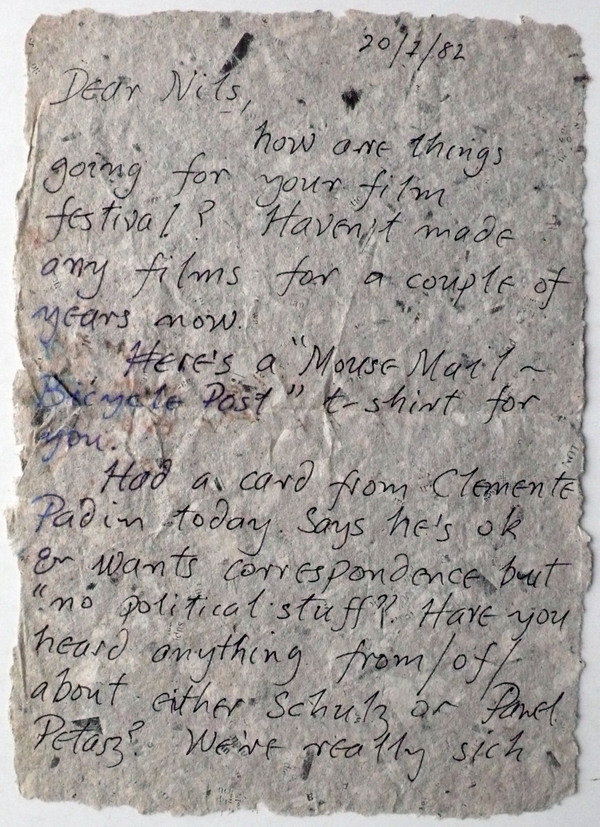 20/7/82
Dear Nils,
how are things
going for your film
festival? Haven't made
any films for a couple of
years now.
Here's a "Mouse Mail ~
Bicycle Post" t-shirt for
you.
Had a card from Clemente
Padin today. Says he's ok
& wants correspondence but
"no political stuff". Have you
heard anything from/of/
about either Schulz or Pawel
Petasz? We're really sich